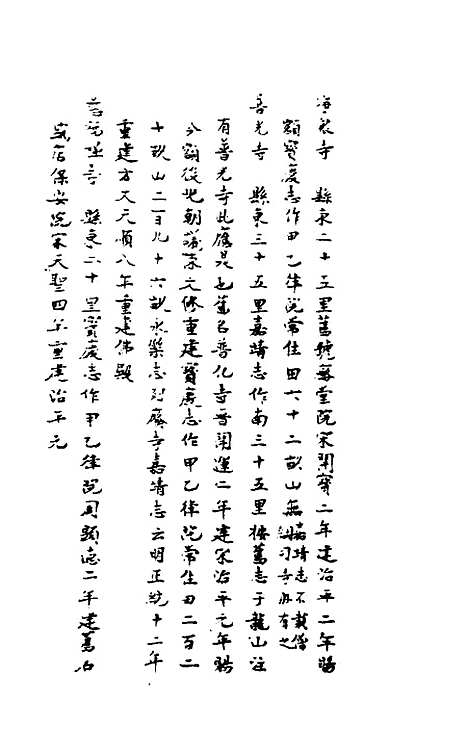 寺　縣東二十五里舊號無量院宋開寶二年建治平二年賜
額寶慶志作甲乙律院常住田六十二畝山無嘉靖志不載僧司寺册有之
普光寺　縣東三十五里嘉靖志作南三十五里按舊志于龍山注
有普光寺此應是也舊名普化寺晉開運二年建宋治平元年賜
今額後燬朝議宋文修重建寶慶志作甲乙律院常住田二百二
十畝山二百九十六畝永樂志列廢寺嘉靖志云明正統十二年
重建方丈天順八年重建佛殿
寺　縣東六十里寶慶志作甲乙律院周顯德二年建舊名
保安院宋天聖四年重建治平元